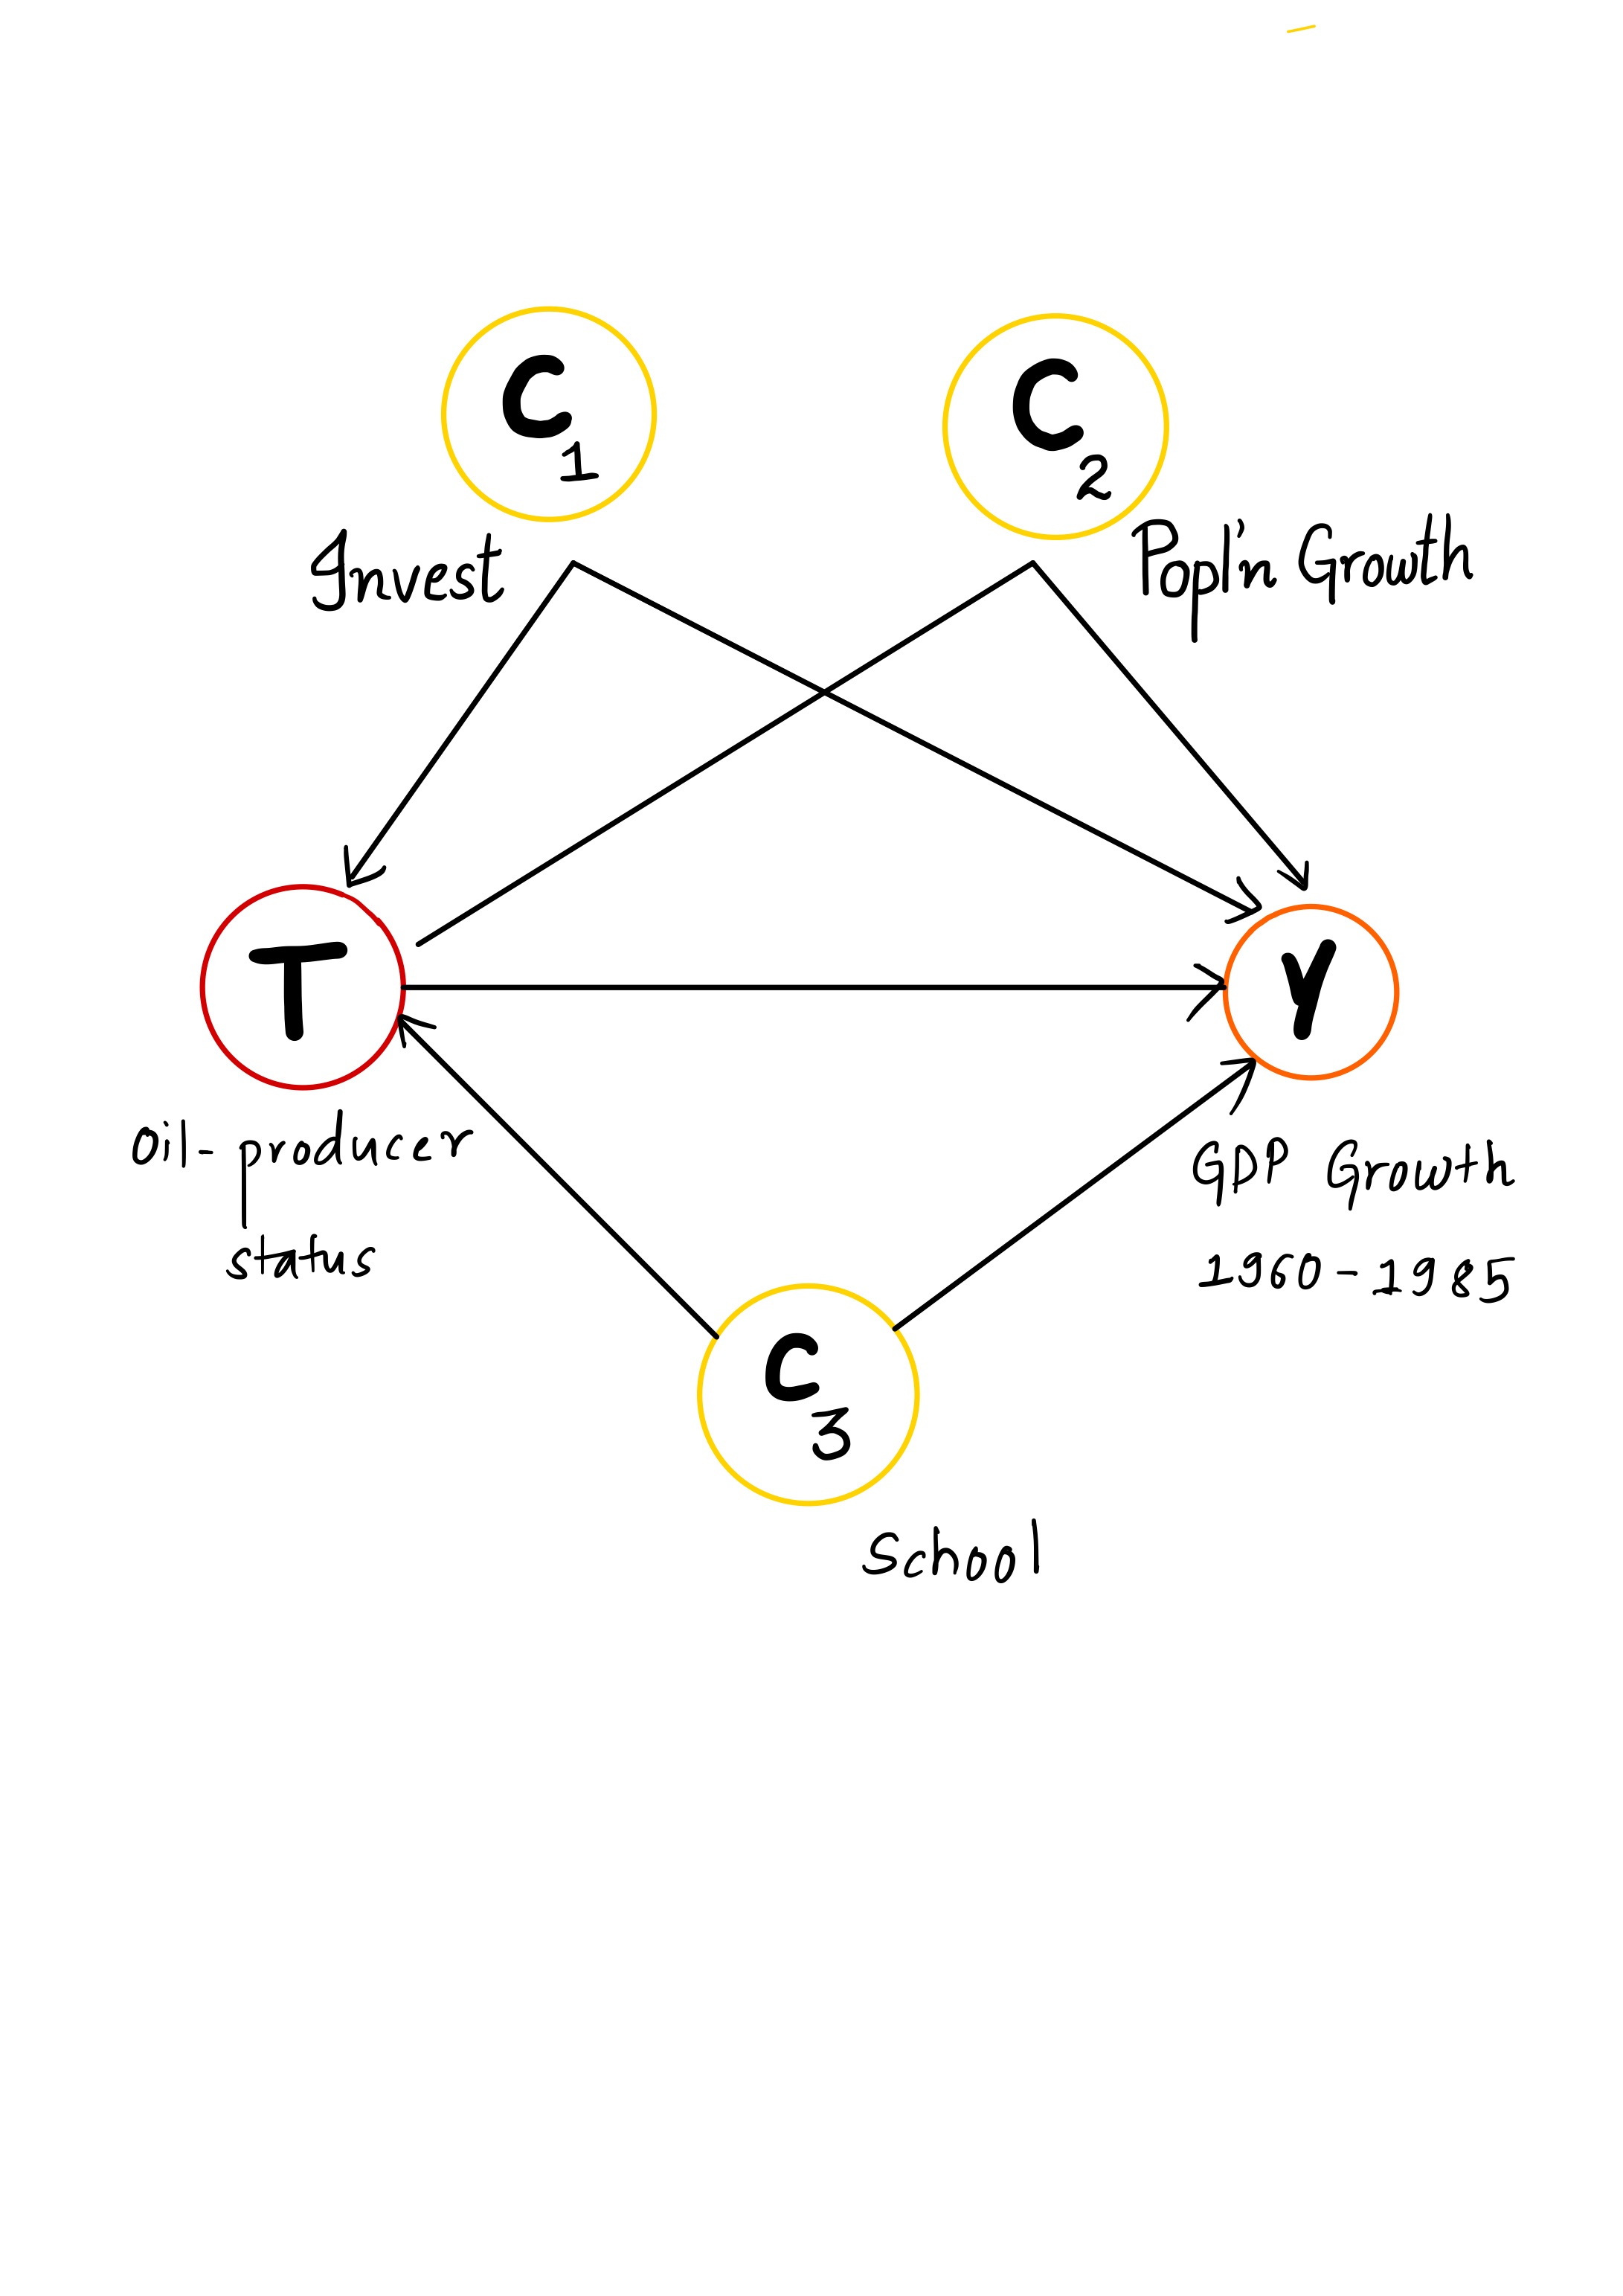 C1
C2
Invest
Pop'n Growth
T
Y
Oil-producer
status
GDP Growth
1960-1985
C3
School